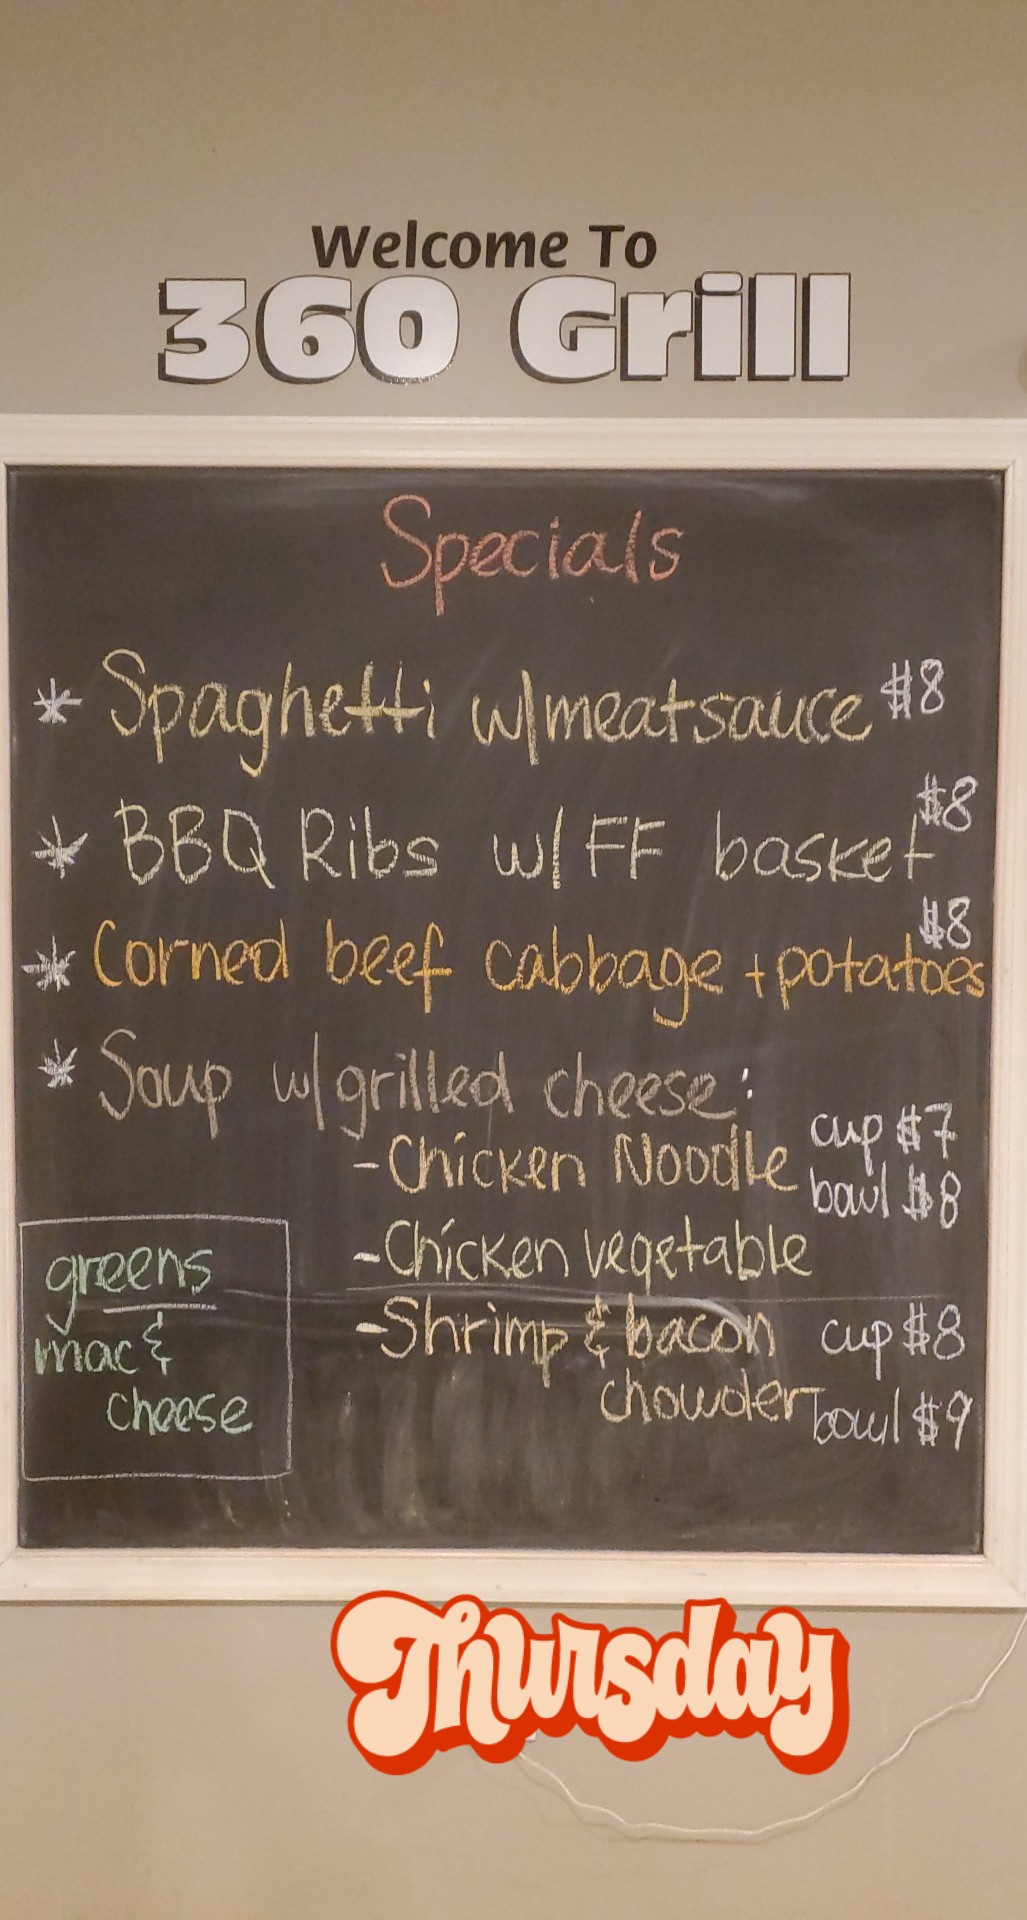 Welcome To
360 Grill
Specials
* Spaghetti w/meatsauce $8
* BBQ Ribs w/ FF basket $8
* Corned beef cabbage + potatoes $8
* Soup w/grilled cheese:
- Chicken Noodle cup $7
bowl $8
- Chicken vegetable
- Shrimp & bacon cup $8
chowder bowl $9
greens
mac &
cheese
Thursday